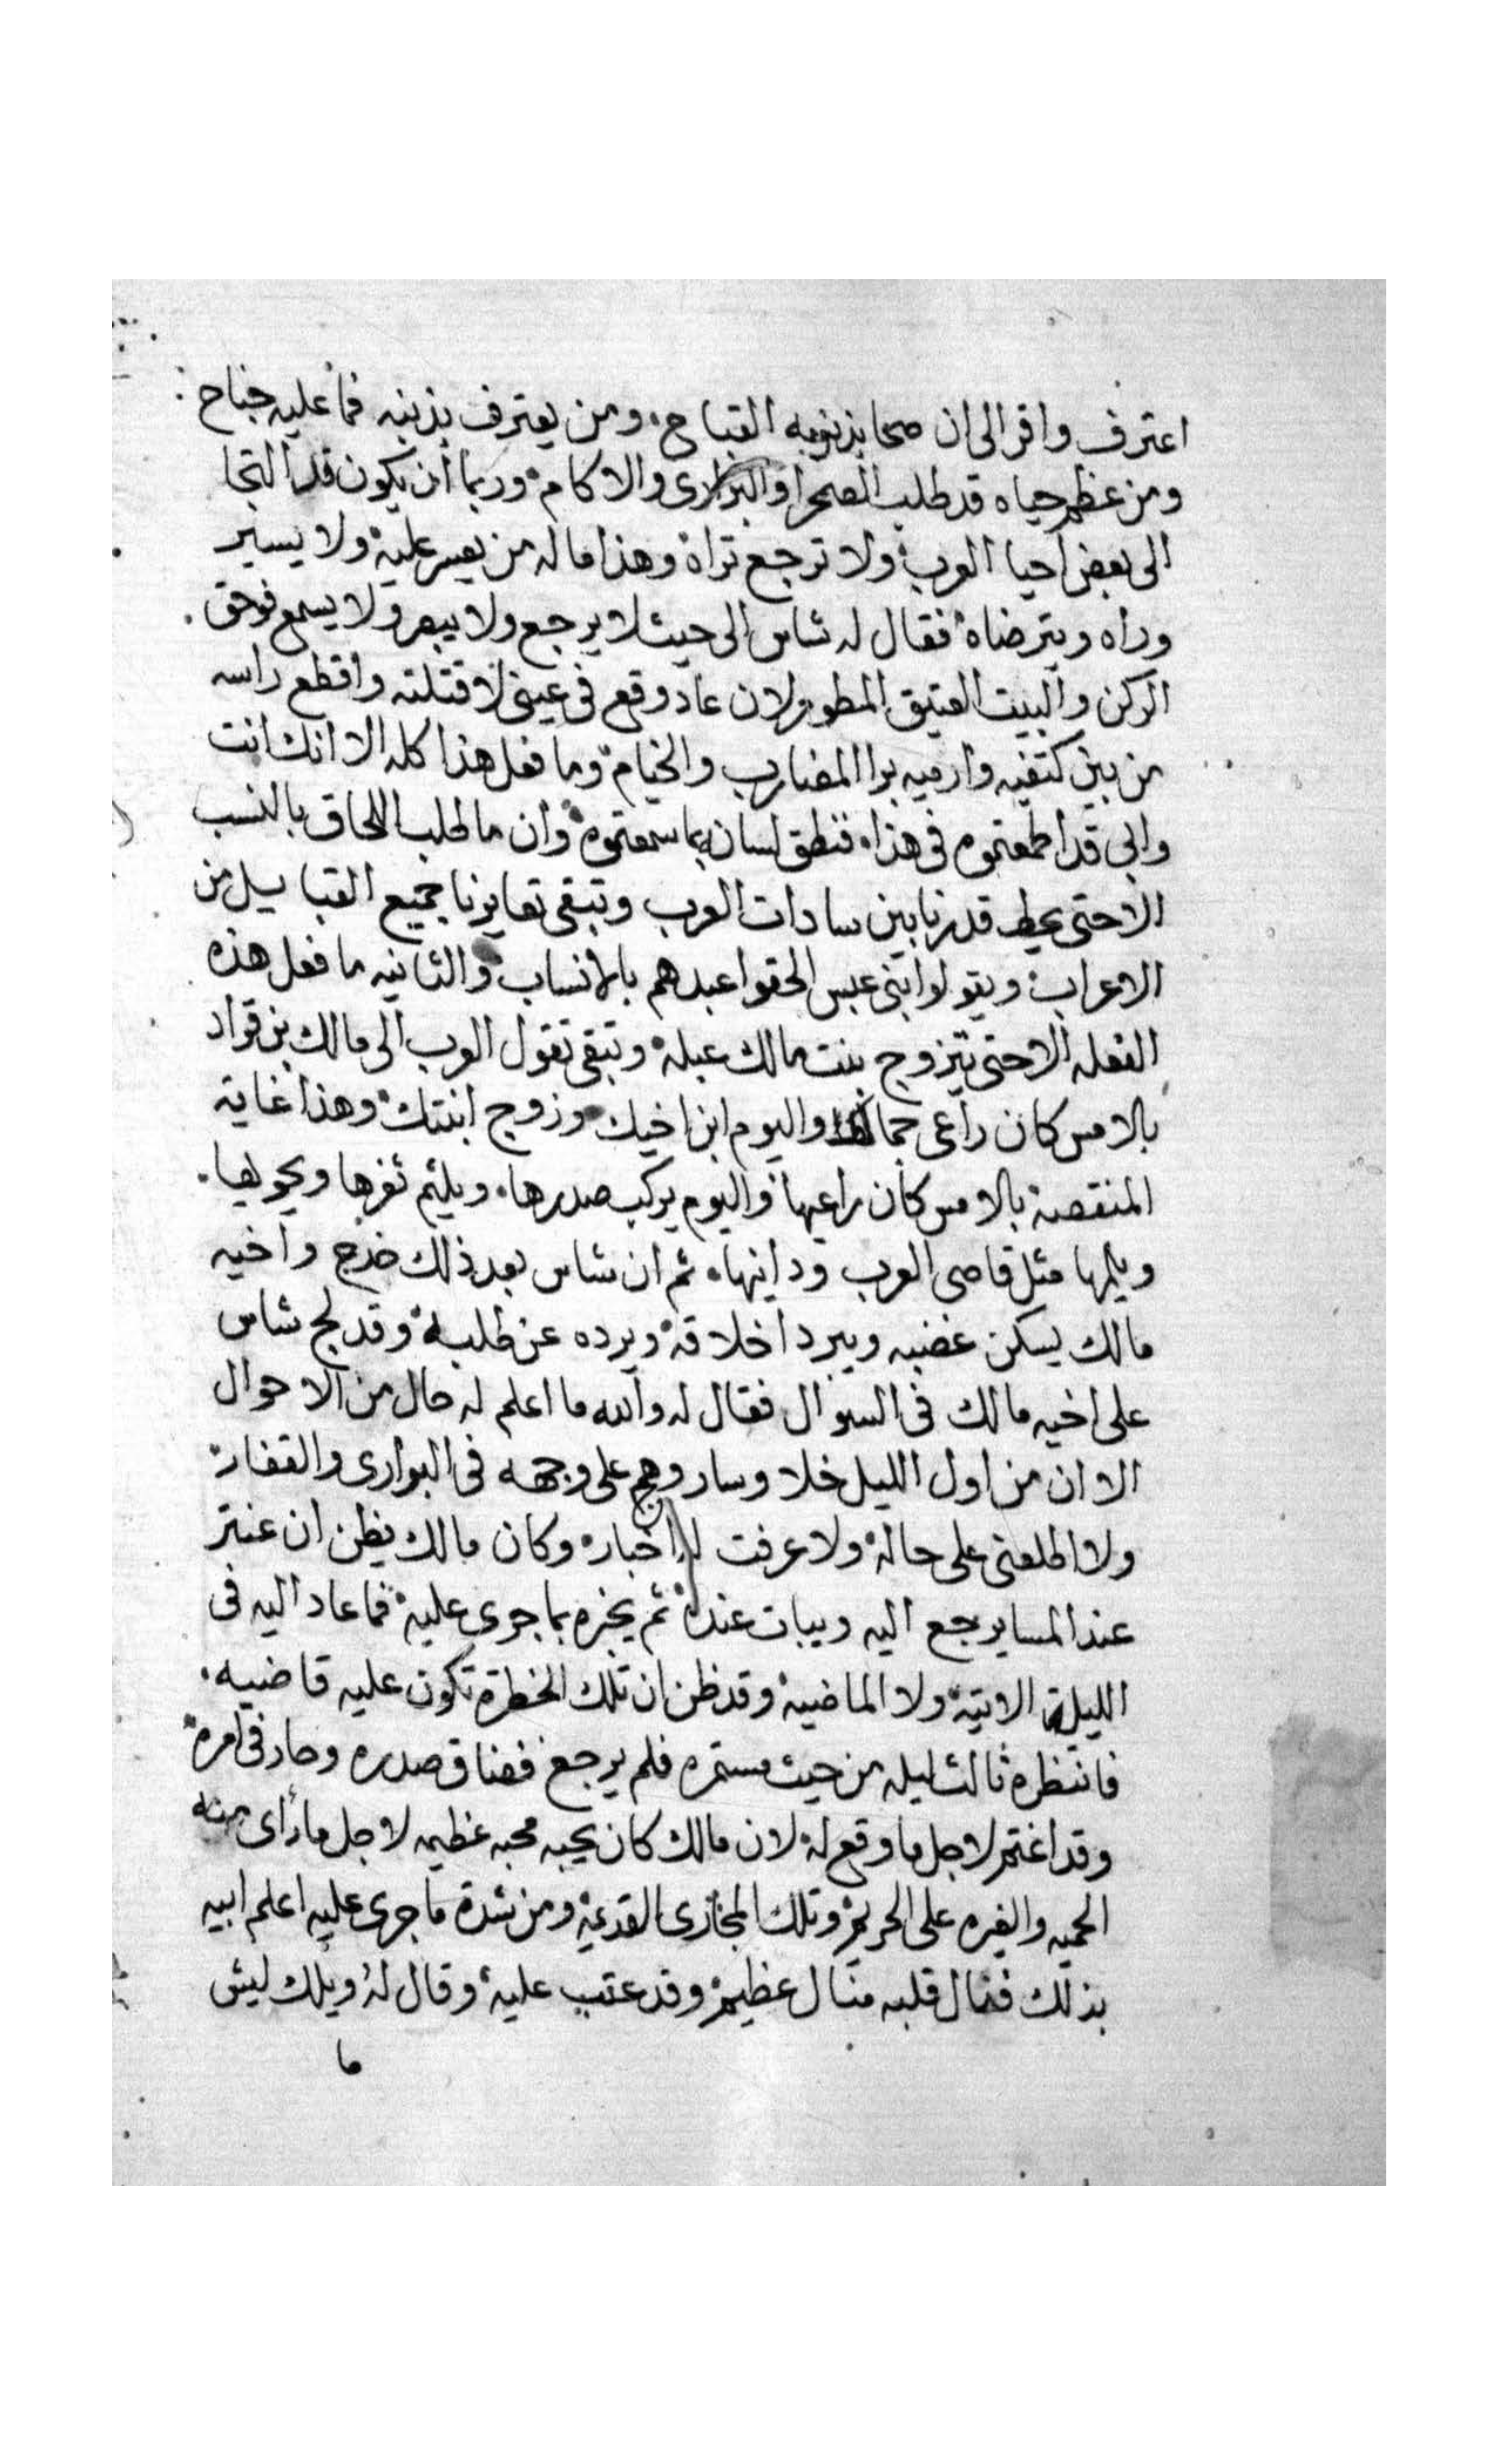 اعترف واقر الى ان صحا بذنوبه القباح ومن يعترف بذنبه فما عليه جناح
ومن عظم حياه قد طلب الصحرا والبرارى والاكام وربما أن يكون قد التجا
الى بعض احيا العرب ولا ترجع تراه وهذا ما له من يعسر عليه ولا يسير
وراه ويترضاه فقال له شاس الى حيث لا يرجع ولا يبصر ولا يسمع فوحق
الركن والبيت العتيق المطهر ولان عاد وقع فى عينى لا قتلته واقطع راسه
من بين كتفيه وارميه برا المضارب والخيام وما فعل هذا كله الا انك انت
وابى قد اطمعتموه فى هذا فنطق لسانه بما سمعتموه وان ما طلب اللحاق بالنسب
الا حتى يحط قدرنا بين سادات العرب وتبقى تعايرنا جميع القبايل من
الاعراب ويقولوا بنى عبس الحقوا عبدهم بالانساب والثانيه ما فعل هذه
الفعله الا حتى يتزوج بنت مالك عبله وتبقى تقول العرب الى مالك بن قراد
بالامس كان راعى جمالك واليوم ابن اخيك وزوج ابنتك وهذا غاية
المنقصة بالامس كان راعيها واليوم يركب صدرها ويلثم ثغرها ويحويها
ويلمها مثل قاصى العرب ودانيها ثم ان شاس بعد ذلك خرج واخيه
مالك يسكن غضبه ويبرد اخلاقه ويرده عن طلبه وقد لج شاس
على اخيه مالك فى السوال فقال له والله ما اعلم له حال من الاحوال
الا ان من اول الليل خلا وسار وهج على وجهه فى البوارى والقفار
ولا اطلعنى على حاله ولا عرفت له اخبار وكان مالك يظن ان عنتر
عند المسا يرجع اليه ويبات عنده ثم يخبره بما جرى عليه فما عاد اليه فى
الليلة الاتية ولا الماضية وقد ظن ان تلك الخطرة تكون عليه قاضيه
فانتظره ثالث ليله من حيث مستمره فلم يرجع فضاق صدره وحار فى امره
وقد اغتم لاجل ما وقع له لان مالك كان يحبه محبه عظيمه لاجل ما رأى منه
الحميه والغيره على الحريم وتلك المخازى القديمة ومن شدة ما جرى عليه اعلم ابيه
بذلك فنال قلبه منال عظيم وقد عتب عليه وقال له ويلك ليش
ما